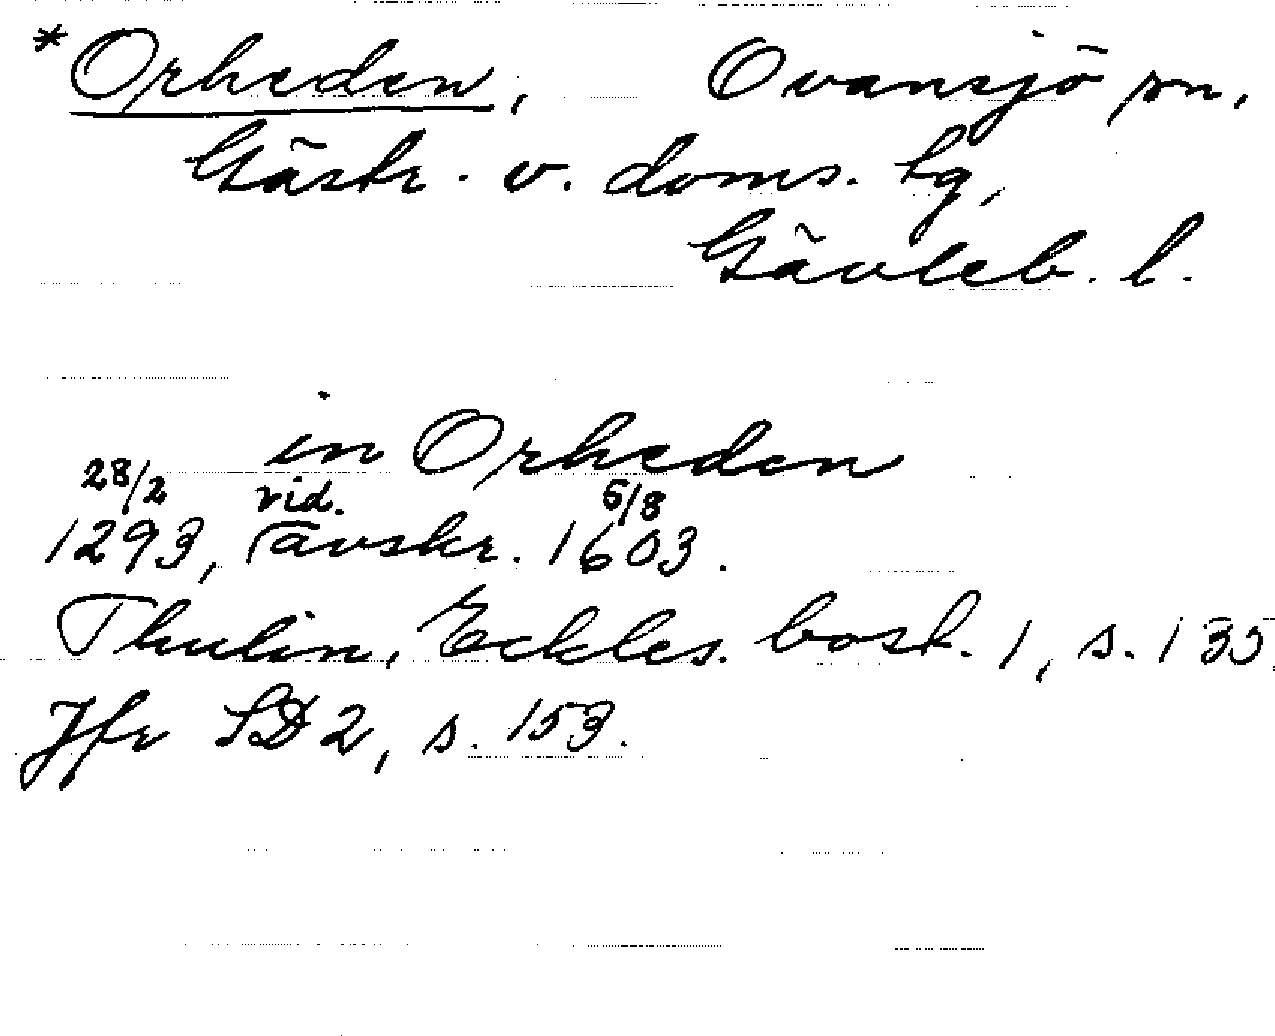 *Orheden, Ovansjö sn,
Gästr. v. doms. tg,
Gävleb. l.
in Orheden
28/2 1293, vid. avskr. 5/8 1603.
Thulin, Eckles. bost. 1, s. 135
Jfr SD 2, s. 153.